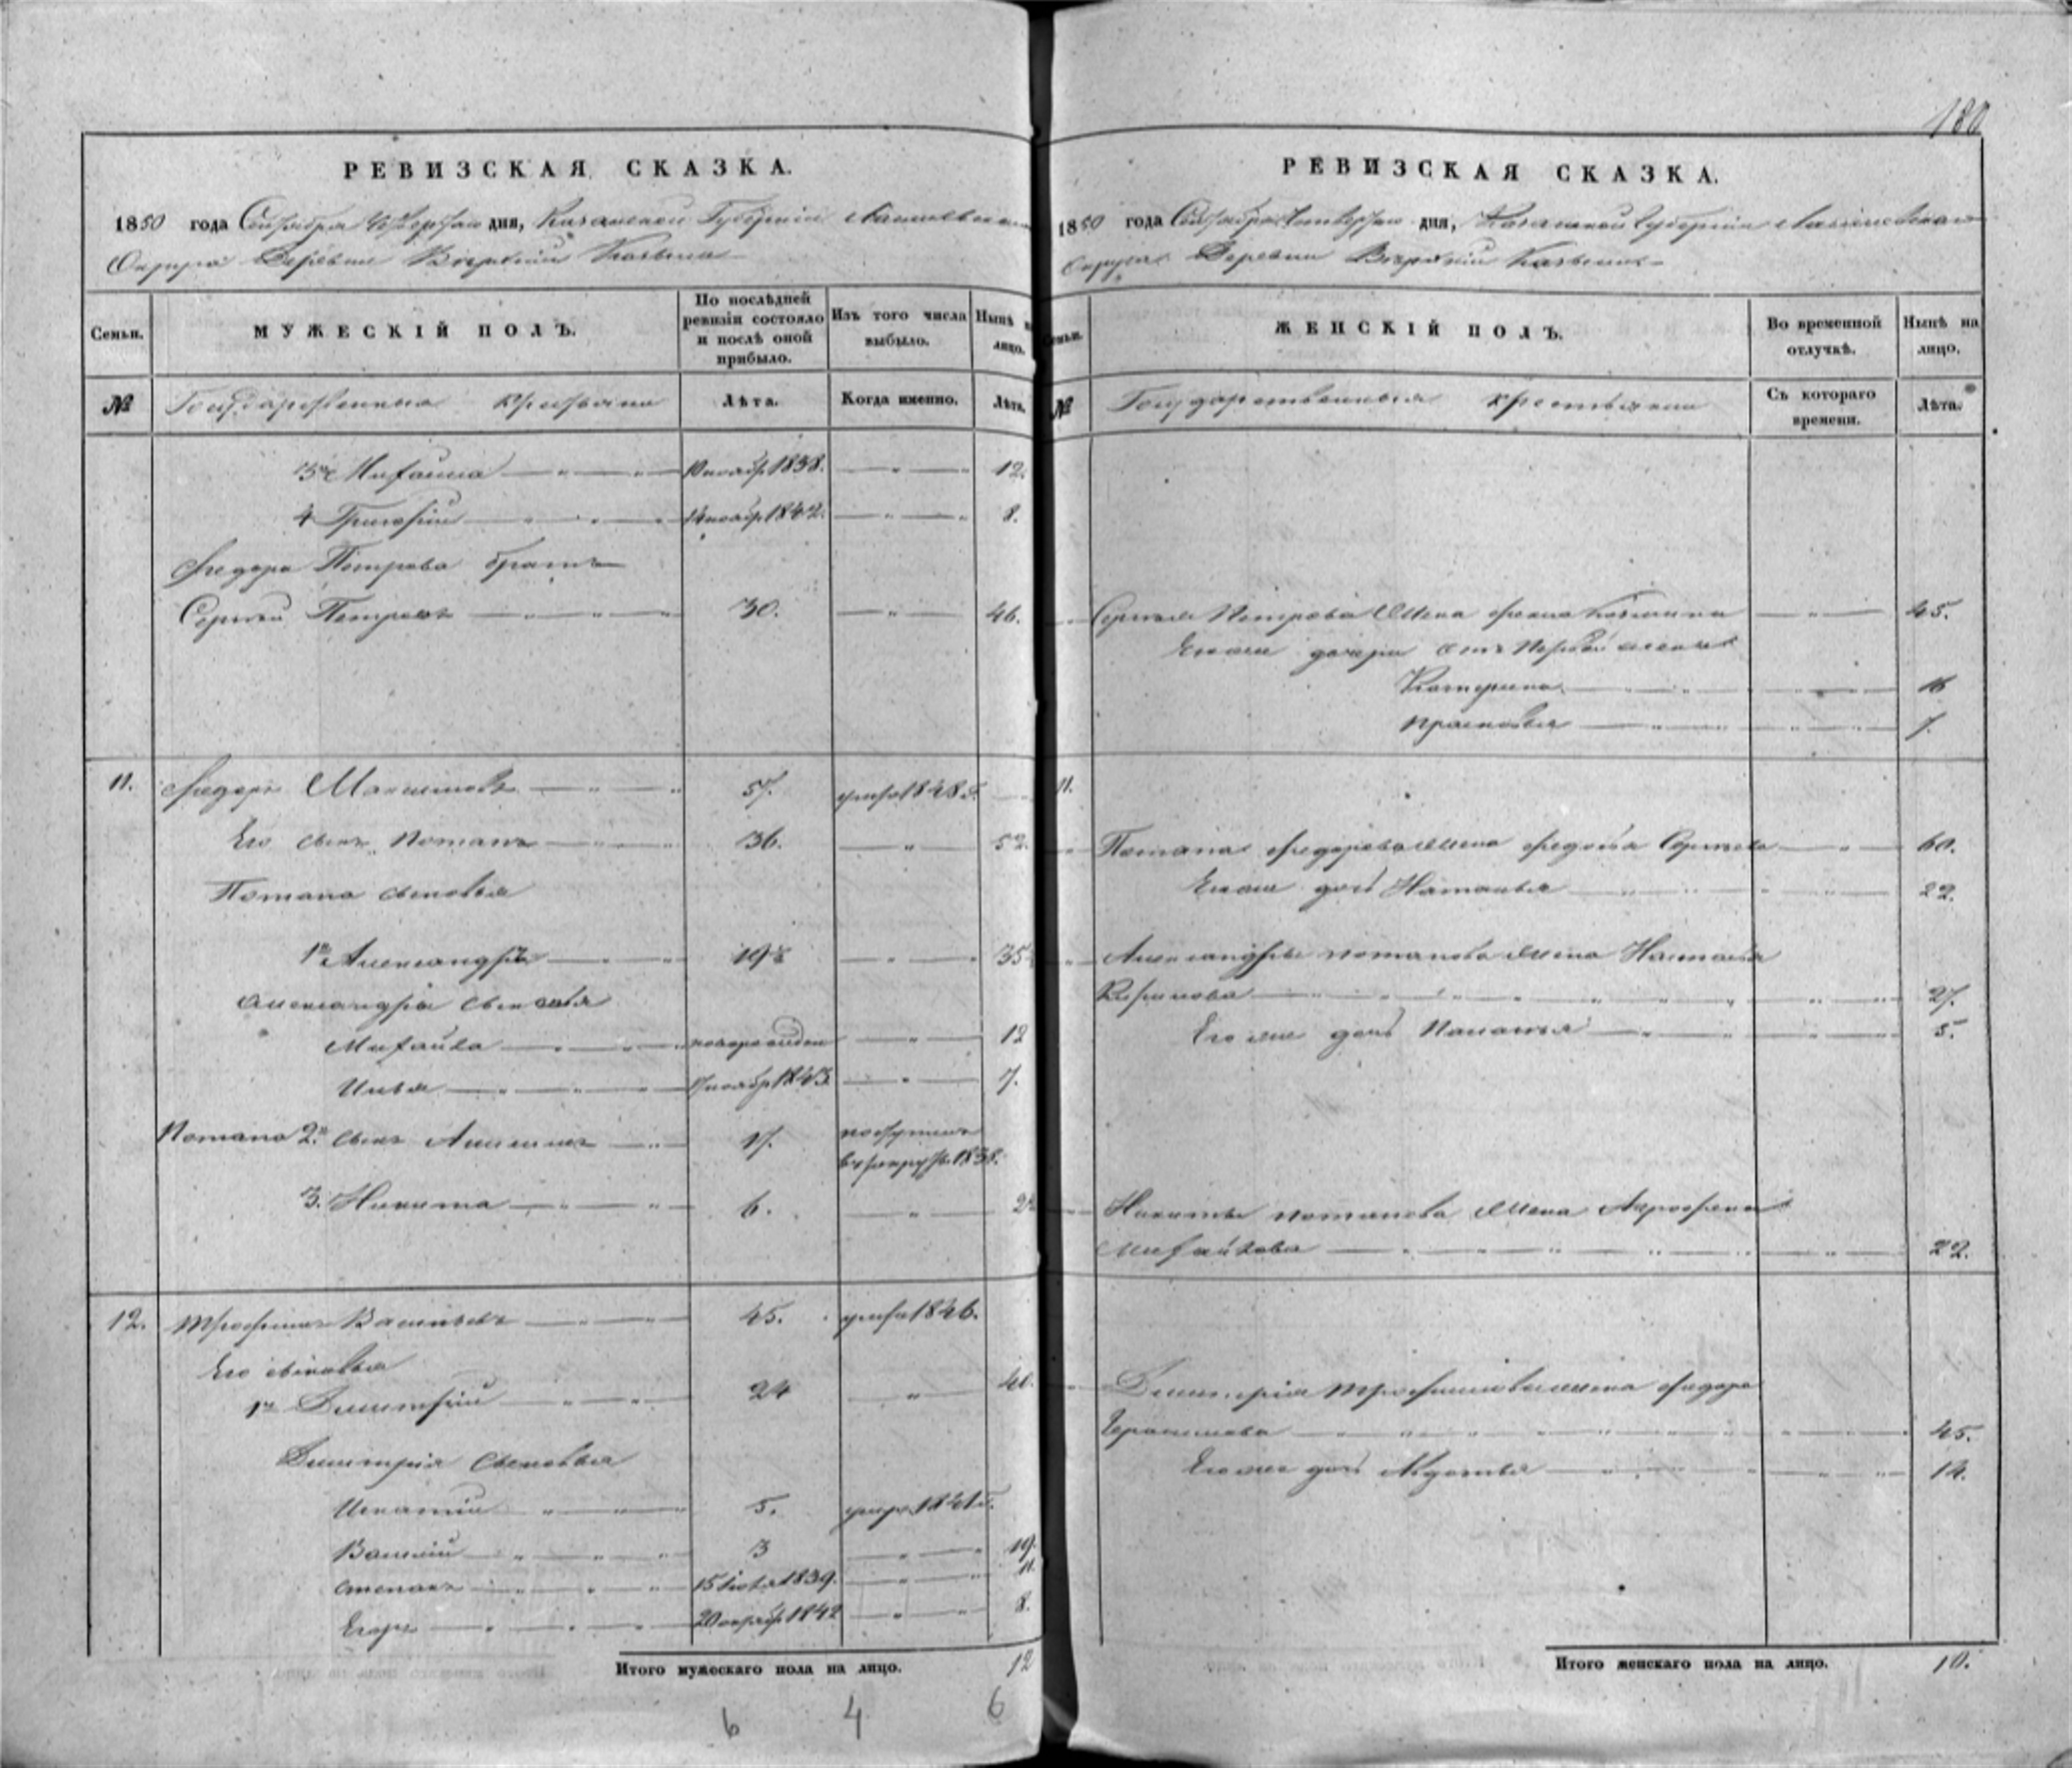 180
РЕВИЗСКАЯ СКАЗКА.
1850 года Октября Четвертаго дня, Казанской Губерніи
Округа Деревни
Семьи. МУЖЕСКІЙ ПОЛЪ. По послѣдней ревизіи состояло и послѣ оной прибыло. Изъ того числа выбыло. Нынѣ на лицо.
№ Государственные крестьяне Лѣта. Когда именно. Лѣта.
3й Михайла 1838. 12.
4 Григорій 1842. 8.
Федора Петрова братъ
Сергѣй Петровъ 30. 46.
11. Федоръ Максимовъ 57. умре 1848 г.
Его сынъ Потапъ 36. 52.
Потапа сыновья
1й Александръ 19½ 35
Александра сыновья
Михайла новорожден 12
Илья 1843 7.
Потапа 2й сынъ 17. поступилъ
въ рекруты 1838.
3. Никита 6. 2
12. Трофимъ Васильевъ 45. умре 1846.
Его сыновья
1й Дмитрій 24 40.
Дмитрія сыновья
Игнатій 5. умре
Василій 3 19.
Степанъ 15 1839. 11.
Егоръ 20 1842 8.
Итого мужескаго пола на лицо. 12
6 4 6
РЕВИЗСКАЯ СКАЗКА.
1850 года Октября Четвертаго дня, Казанской Губерніи
Округа Деревни
Семьи. ЖЕНСКІЙ ПОЛЪ. Во временной отлучкѣ. Нынѣ на лицо.
№ Государственныя крестьянки Съ котораго времени. Лѣта.
Сергѣя Петрова жена 45.
Его же дочери отъ первой жены
Катерина 16
Прасковья 7.
11.
Потапа Федорова жена Федосья Сергѣева 60.
Его же дочь Наталья 22.
Александра Потапова жена Настасья
27.
Его же дочь 5.
Никиты Потапова жена Аграфена
Михайлова 22.
Дмитрія Трофимова жена Федора
Герасимова 45.
Его же дочь Авдотья 14.
Итого женскаго пола на лицо. 10.